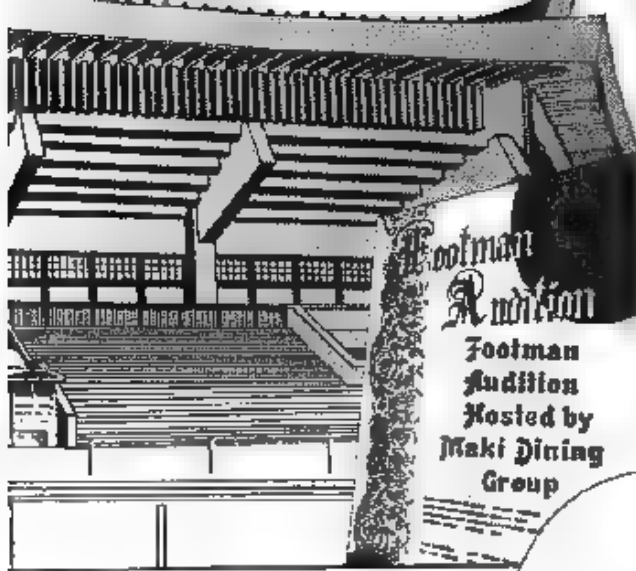 Footman
Audition
Footman
Audition
Hosted by
Maki Dining
Group